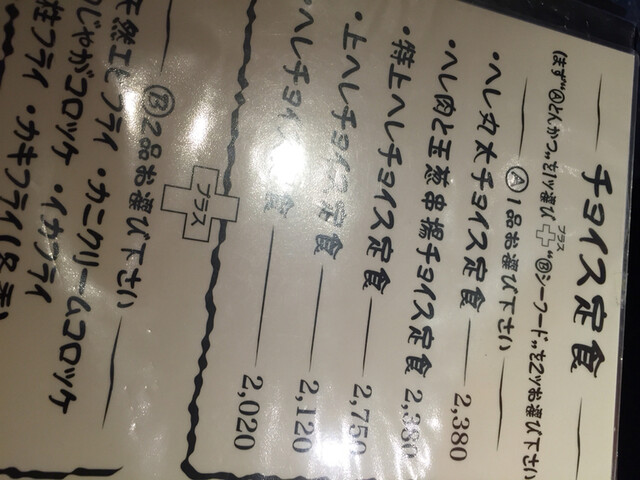 チョイス定食
(まず"Ⓐとんかつ"を1ツ選び プラス "Ⓑシーフード"を2ツお選び下さい
Ⓐ 1品お選び下さい
・ヘレ丸太チョイス定食 2,380
・ヘレ肉と玉葱串揚チョイス定食 2,380
・特上ヘレチョイス定食 2,750
・上ヘレチョイス定食 2,120
ヘレチョイス定食 2,020
プラス
Ⓑ 2品お選び下さい
天然エビフライ ・カニクリームコロッケ
じゃがコロッケ ・イカフライ
柱フライ ・カキフライ